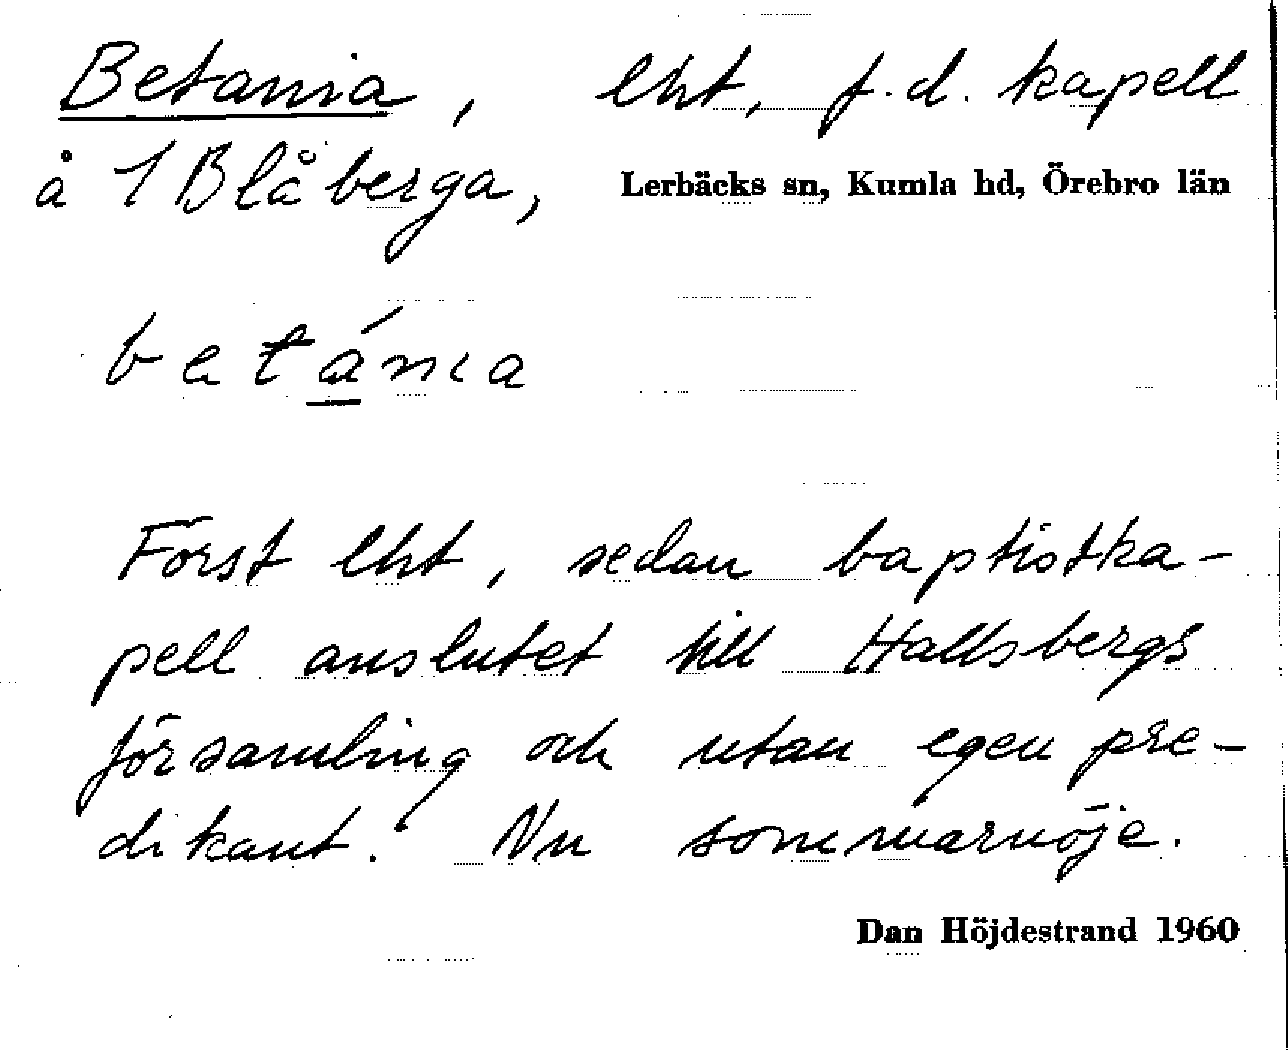 Betania, lht, f.d. kapell
å 1 Blåberga, Lerbäcks sn, Kumla hd, Örebro län
betánıa
Först lht, sedan baptistka-
pell anslutet till Hallsbergs
församling och utan egen pre-
dikant. Nu sommarnöje.
Dan Höjdestrand 1960